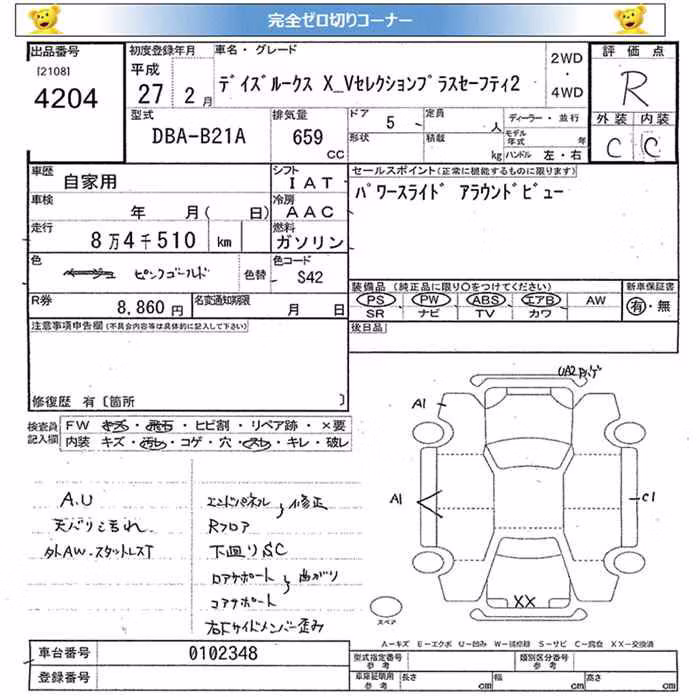 完全ゼロ切りコーナー
出品番号
[2108]
4204
初度登録年月
平成
27 2月
車名・グレード
デイズルークス X_Vセレクションプラスセーフティ2
2WD
・
4WD
評価点
R
外装 内装
C C
型式
DBA-B21A
排気量
659
CC
ドア 5
定員 人
形状
積載 kg
ディーラー・並行
モデル年式 年
ハンドル 左・右
車歴
自家用
シフト
IAT
車検
年 月( 日)
冷房
AAC
走行
8万4千510 km
燃料
ガソリン
色
ベージュ ピンクゴールド
色替
色コード
S42
R券
8,860円
名変通知期限
月 日
セールスポイント(正常に機能するものに限ります)
パワースライド アラウンドビュー
装備品(純正品に限り○をつけてください)
PS PW ABS エアB AW
SR ナビ TV カワ
新車保証書
有・無
後日品
注意事項申告欄(不具合内容等は具体的に記入して下さい)
修復歴 有〔箇所 〕
検査員記入欄
FW キズ・飛石・ヒビ割・リペア跡・×要
内装 キズ・汚れ・コゲ・穴・スレ・キレ・破レ
A.U
天バリ汚れ
外AW・スタットレスT
エンドパネル 修正
Rフロア
下廻りSC
ロアサポート 曲がり
コアサポート
右Fサイドメンバー歪み
UA2
A1
A1
C1
XX
スペア
A-キズ E-エクボ U-凹み W-補修跡 S-サビ C-腐食 XX-交換済
車台番号
0102348
登録番号
型式指定番号
参考
類別区分番号
参考
車庫証明用
参考
長さ cm
幅 cm
高さ cm